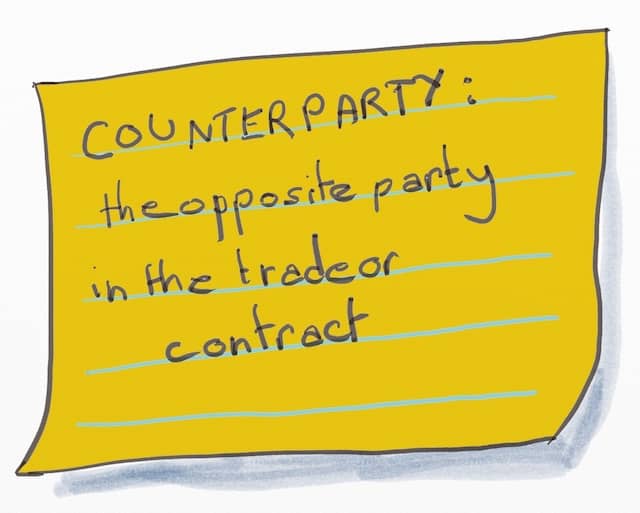 COUNTERPARTY:
the opposite party
in the trade or
contract